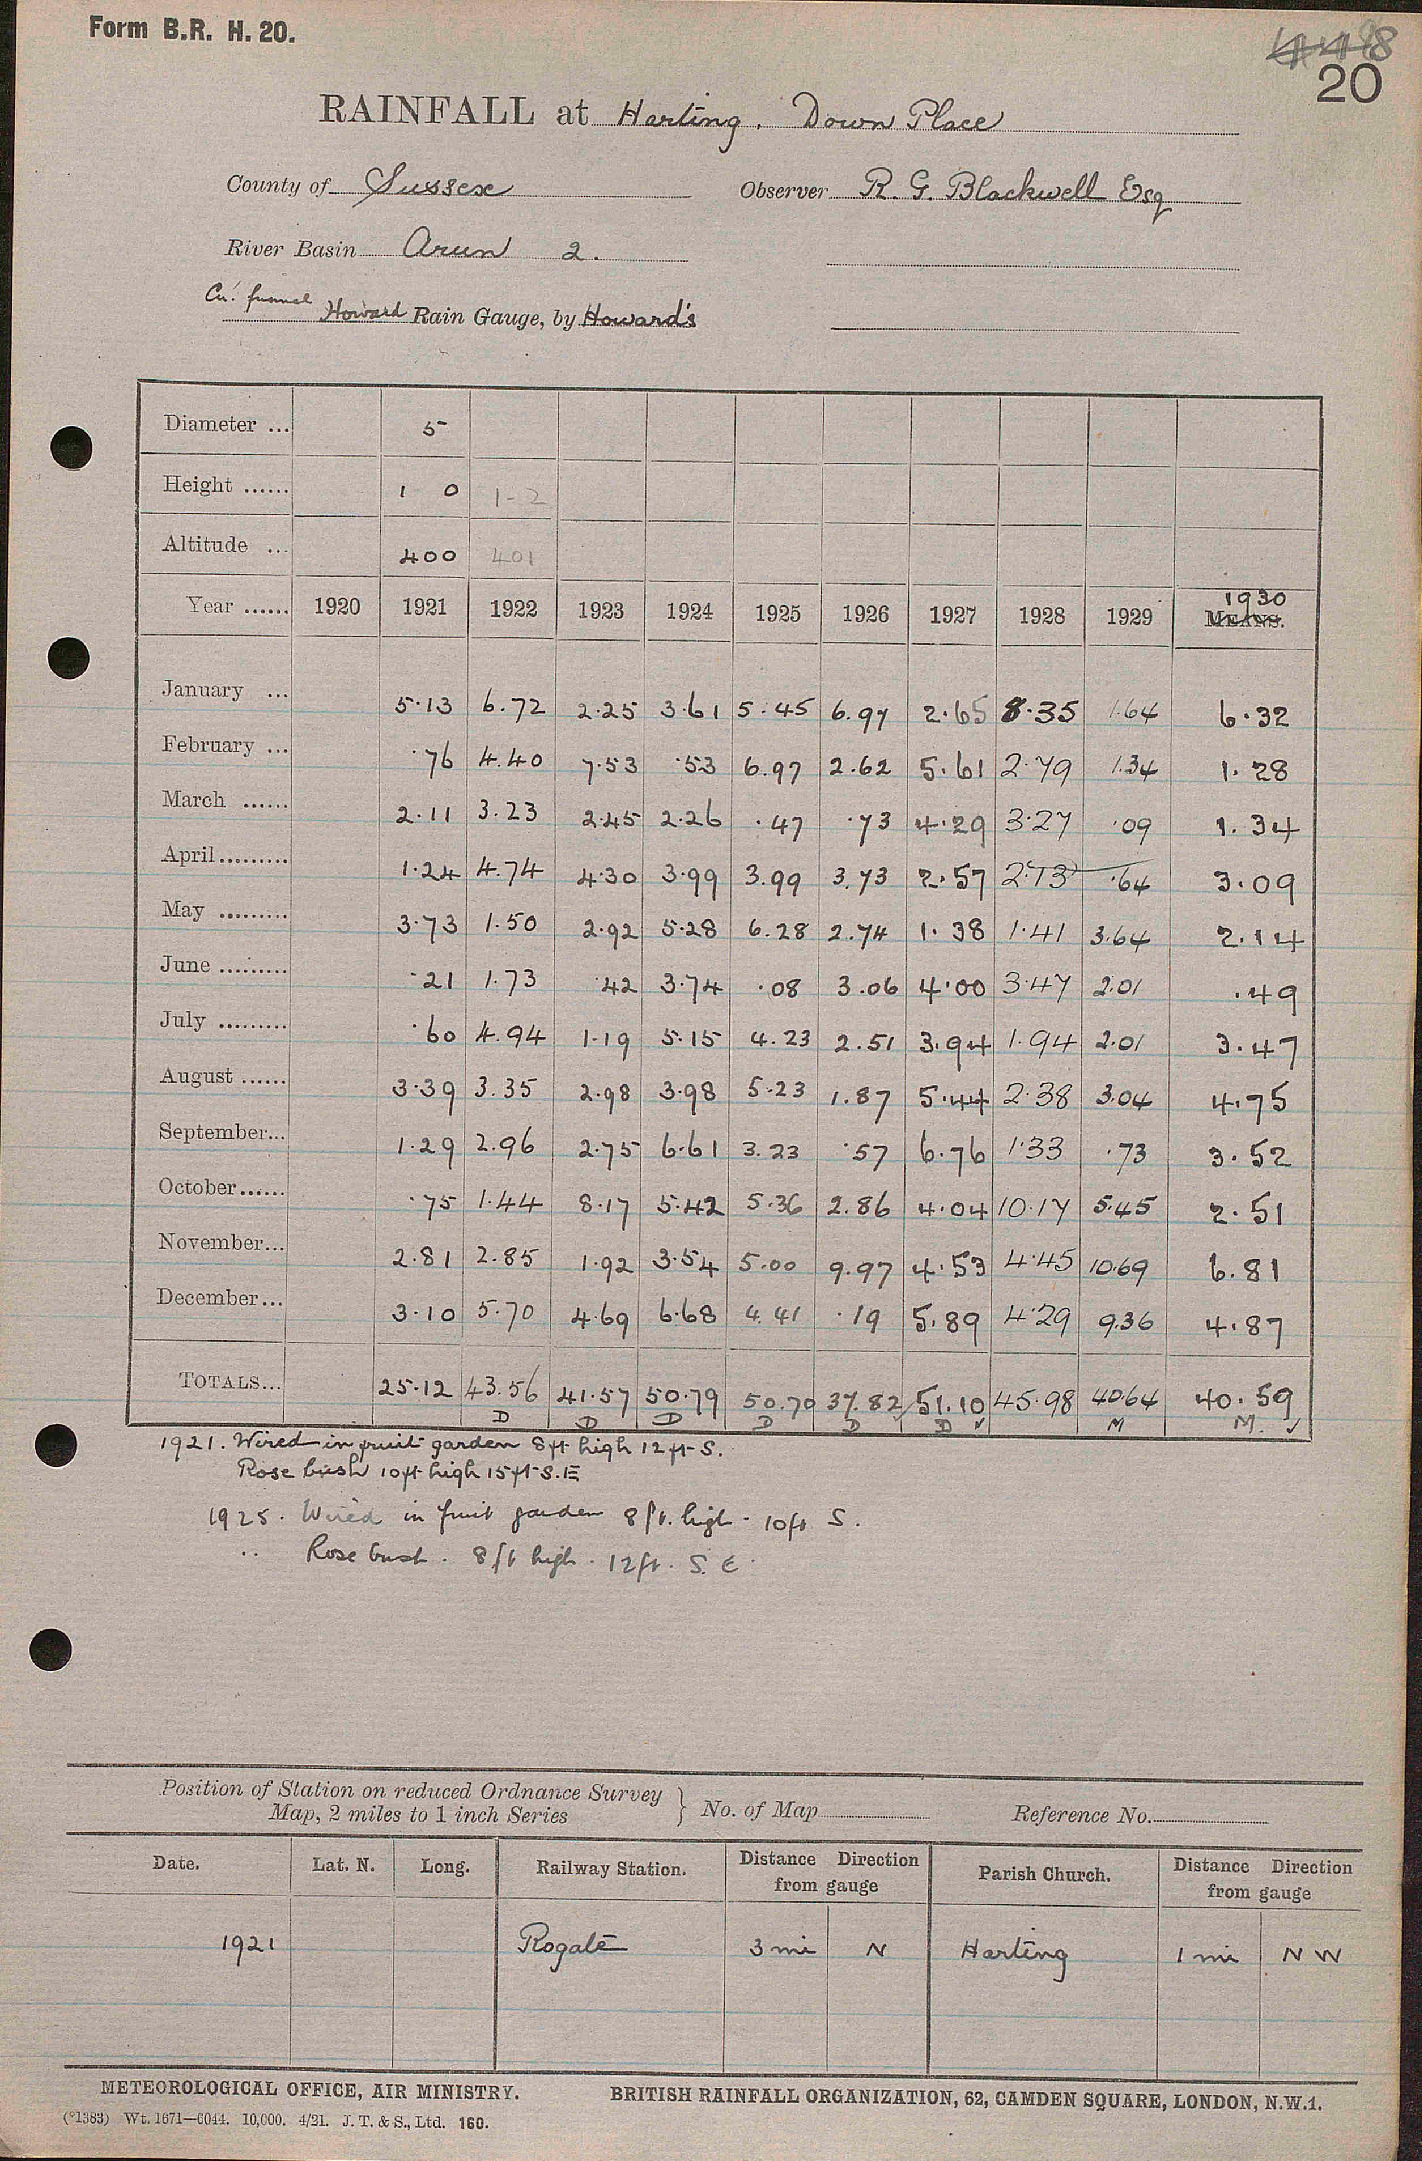 Form B.R. H. 20.
20
RAINFALL at Harting. Down Place
County of Sussex Observer R. G. Blackwell Esq
River Basin Arun 2.
Cu. funnel Howard Rain Gauge, by Howard's
Diameter ... 5
Height ...... 1 0 1-2
Altitude ... 400 401
Year ...... 1920 1921 1922 1923 1924 1925 1926 1927 1928 1929 1930 MEANS.
January ... 5.13 6.72 2.25 3.61 5.45 6.97 2.65 8.35 1.64 6.32
February ... .76 4.40 7.53 .53 6.97 2.62 5.61 2.79 1.34 1.28
March ...... 2.11 3.23 2.45 2.26 .47 .73 4.29 3.27 .09 1.34
April ......... 1.24 4.74 4.30 3.99 3.99 3.73 2.57 2.13 .64 3.09
May ......... 3.73 1.50 2.92 5.28 6.28 2.74 1.38 1.41 3.64 2.14
June ......... .21 1.73 .42 3.74 .08 3.06 4.00 3.47 2.01 .49
July ......... .60 4.94 1.19 5.15 4.23 2.51 3.94 1.94 2.01 3.47
August ...... 3.39 3.35 2.98 3.98 5.23 1.87 5.44 2.38 3.04 4.75
September... 1.29 2.96 2.75 6.61 3.23 .57 6.76 1.33 .73 3.52
October ...... .75 1.44 8.17 5.42 5.36 2.86 4.04 10.17 5.45 2.51
November... 2.81 2.85 1.92 3.54 5.00 9.97 4.53 4.45 10.69 6.81
December... 3.10 5.70 4.69 6.68 4.41 .19 5.89 4.29 9.36 4.87
TOTALS... 25.12 43.56 41.57 50.79 50.70 37.82 51.10 45.98 40.64 40.59
D D D D D D ✓ M M. ✓
1921. Wired in fruit garden 8ft high 12ft S.
Rose bush 10ft high 15ft S.E
1925. Wired in fruit garden 8ft. high - 10ft S.
" Rose bush. 8ft high. 12ft. S.E.
Position of Station on reduced Ordnance Survey
Map, 2 miles to 1 inch Series } No. of Map Reference No.
Date. Lat. N. Long. Railway Station. Distance Direction from gauge Parish Church. Distance Direction from gauge
1921 Rogate 3 mi N Harting 1 mi NW
METEOROLOGICAL OFFICE, AIR MINISTRY. BRITISH RAINFALL ORGANIZATION, 62, CAMDEN SQUARE, LONDON, N.W.1.
(*1383) Wt. 1671—6044. 10,000. 4/21. J. T. & S., Ltd. 160.